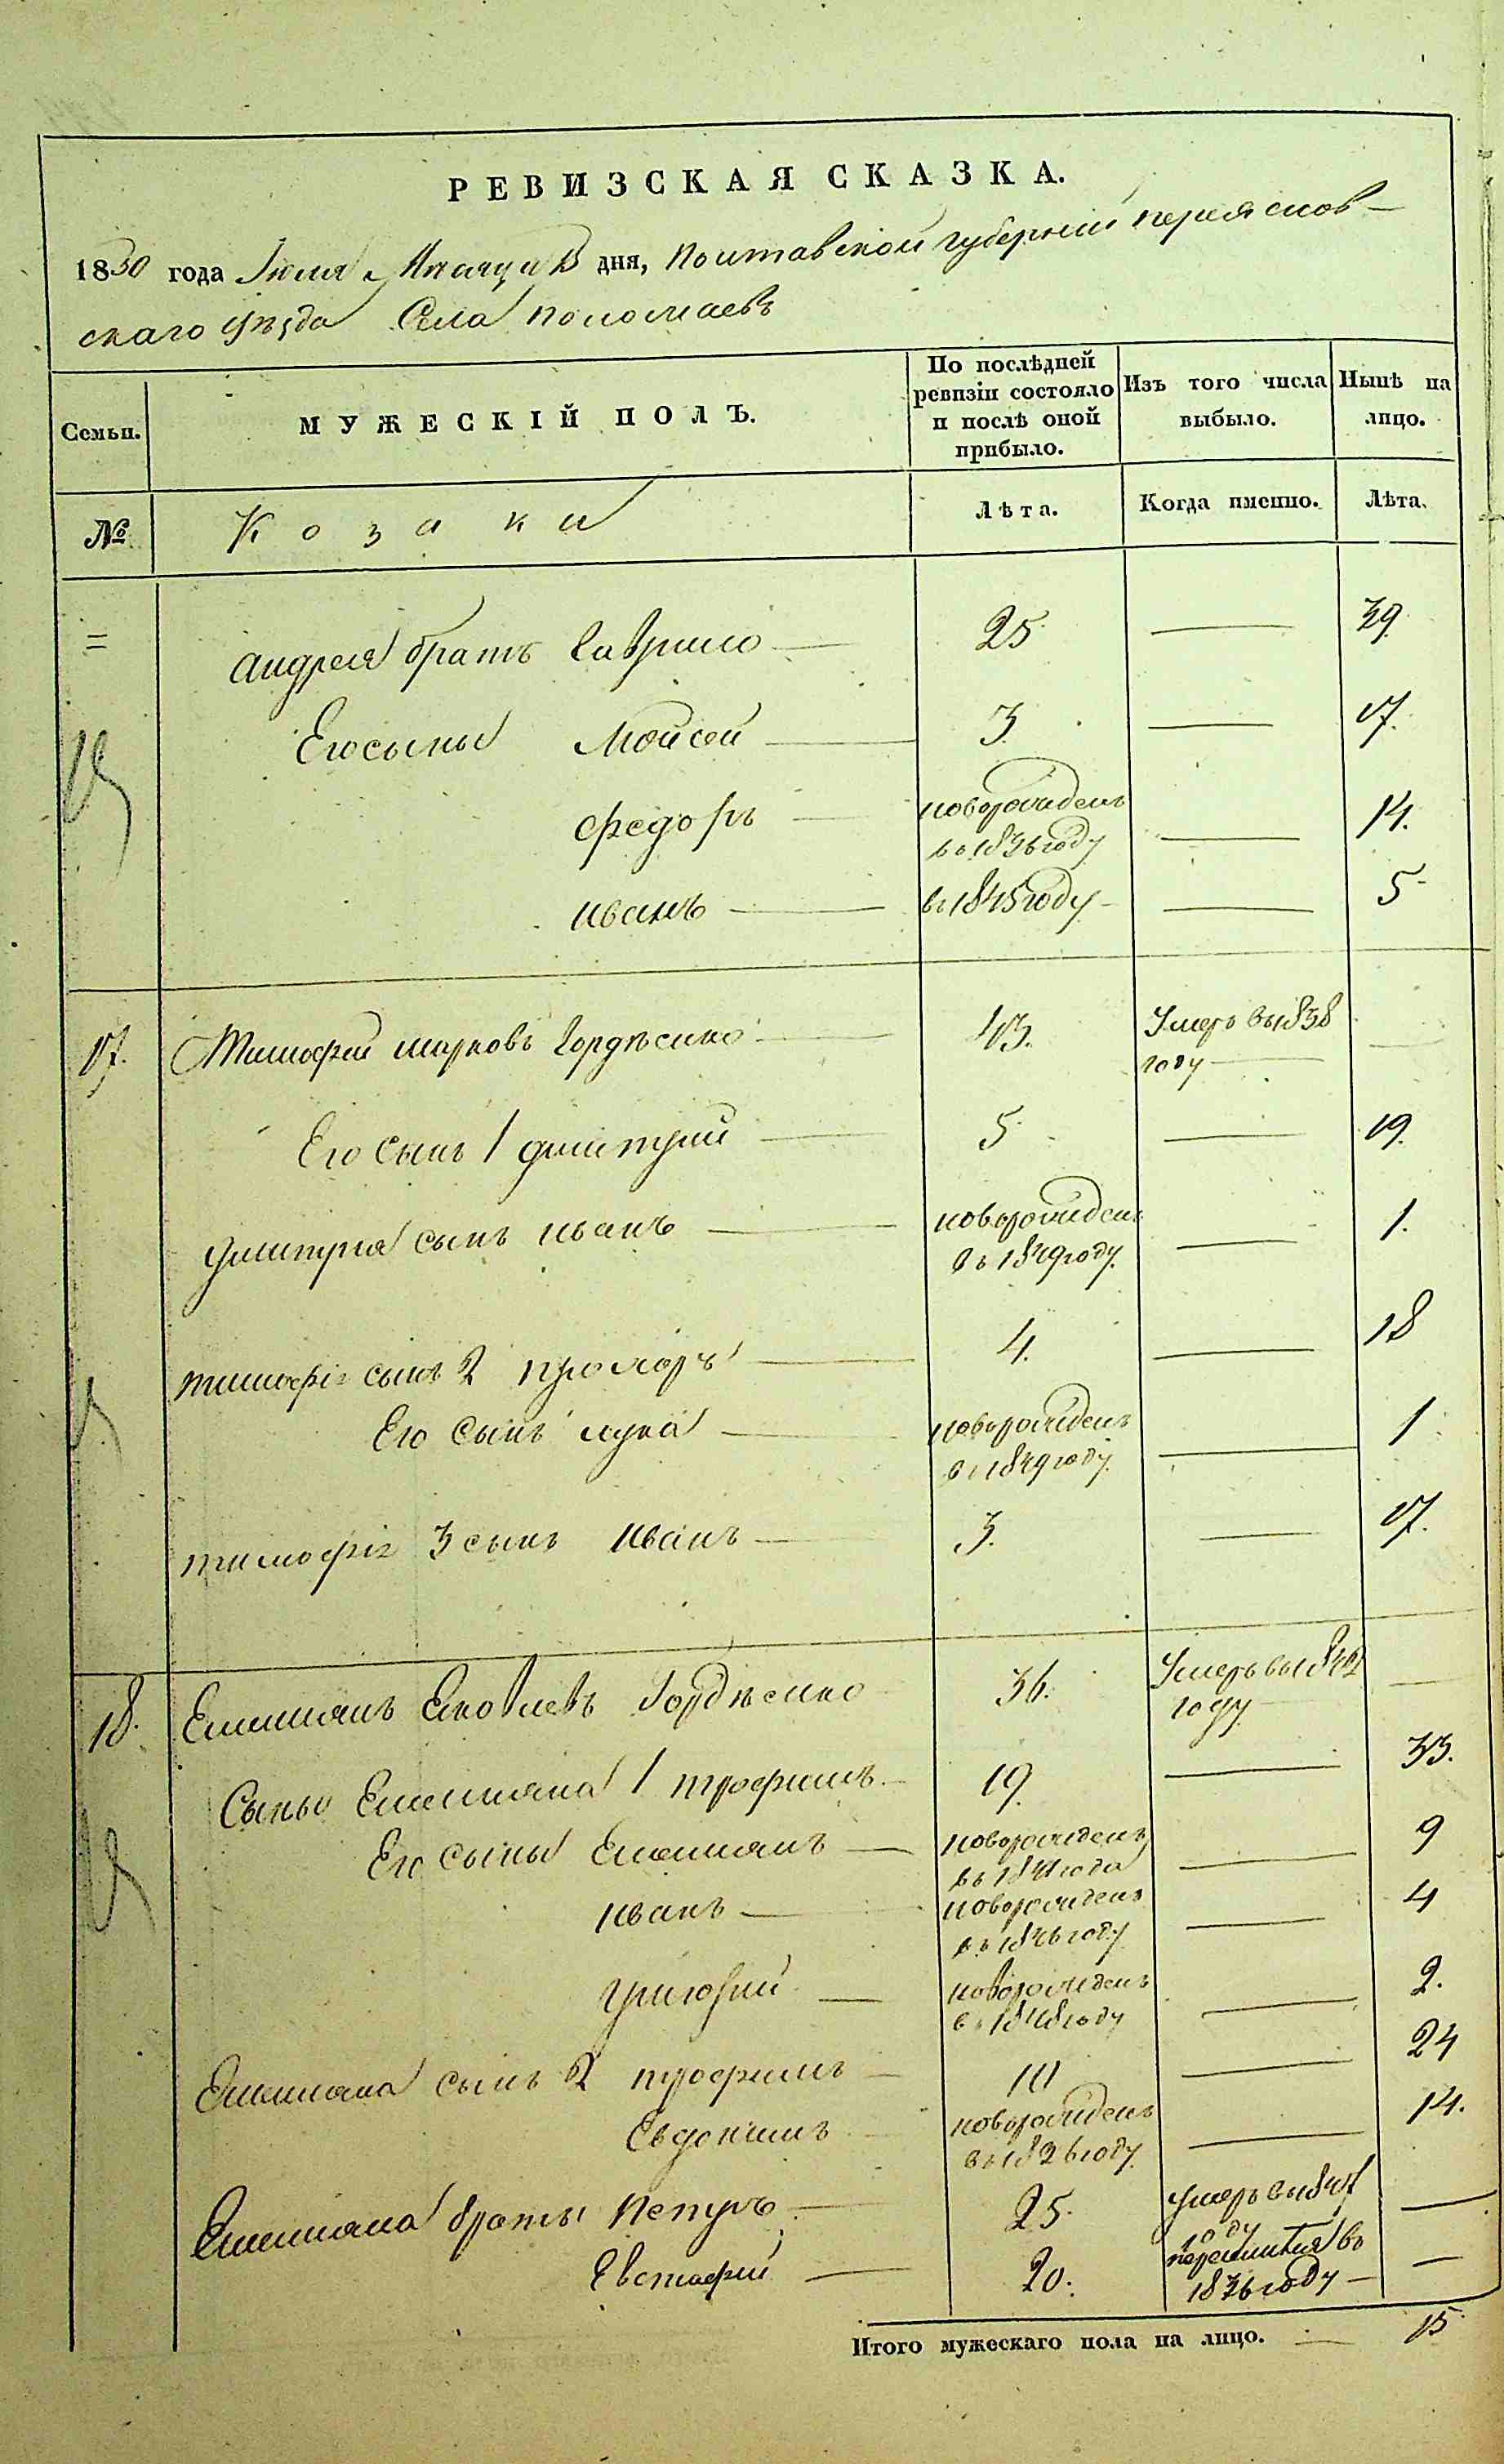 РЕВИЗСКАЯ СКАЗКА.
1850 года Июля Месяца дня, Полтавской губернии переяслов-
скаго уѣзда Села
Семьи.
МУЖЕСКІЙ ПОЛЪ.
По послѣдней ревизіи состояло и послѣ оной прибыло.
Изъ того числа выбыло.
Нынѣ на лицо.
№
Козаки
Лѣта.
Когда именно.
Лѣта.
= андрея братъ Гаврило — 25 — 39.
Его сыны Мойсей — 3. — 17.
федоръ — новорожденъ — 14.
въ 1836 году
иванъ — въ 1845 году — 5
17. Тимофей марковъ Гордѣенко — 43. Умеръ въ 1838 —
году —
Его сынъ 1 дмитрий — 5 — 19.
дмитрия сынъ иванъ — новорожденъ — 1.
въ 1849 году
тимофія сынъ 2 прохоръ — 4. — 18
Его сынъ лука — новорожденъ — 1
въ 1849 году
тимофія 3 сынъ иванъ — 3. — 17.
18. Емелианъ Яковлевъ Гордѣенко 36. Умеръ въ —
году
Сыны Емелиана 1 трофимъ — 19. — 33.
Его сыны Емелианъ — новорожденъ — 9
въ 1841 года
иванъ — новорожденъ — 4
въ 1846 году
григорий — новорожденъ — 2.
въ 1848 году
Емелиана сынъ 2 трофимъ — 10 — 24
Евдокимъ — новорожденъ — 14.
въ 1836 году
Емелиана браты Петръ — 25. умеръ —
году
Евстафий — 20. переселился въ —
1836 году —
Итого мужескаго пола на лицо. — 15